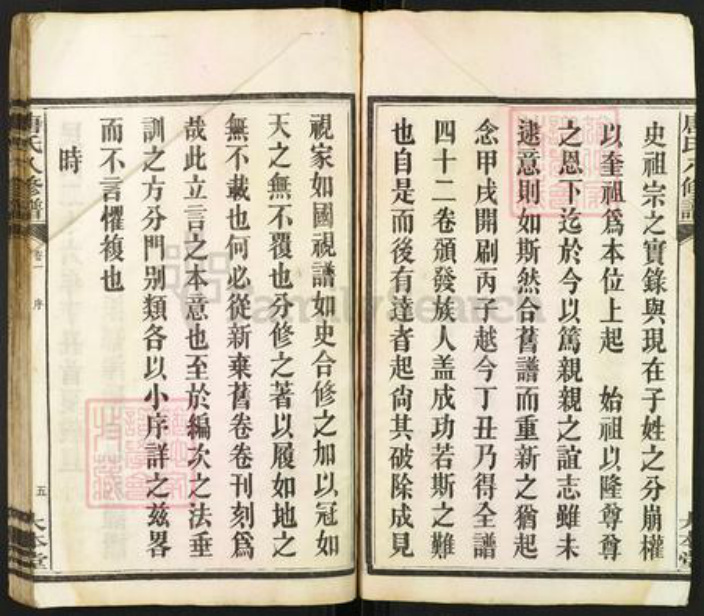 史祖宗之實錄與現在子姓之分崩權
以奎祖爲本位上起　始祖以隆尊尊
之恩下迄於今以篤親親之誼志雖未
逮意則如斯然合舊譜而重新之猶起
念甲戌開刷丙子越今丁丑乃得全譜
四十二卷頒發族人盖成功若斯之難
也自是而後有達者起尙其破除成見
視家如國視譜如史合修之加以冠如
天之無不覆也分修之著以履如地之
無不載也何必從新棄舊卷卷刊刻爲
哉此立言之本意也至於編次之法垂
訓之方分門别類各以小序詳之兹畧
而不言懼複也
時
唐氏八修譜
卷一
序
五
大本堂
FamilySearch